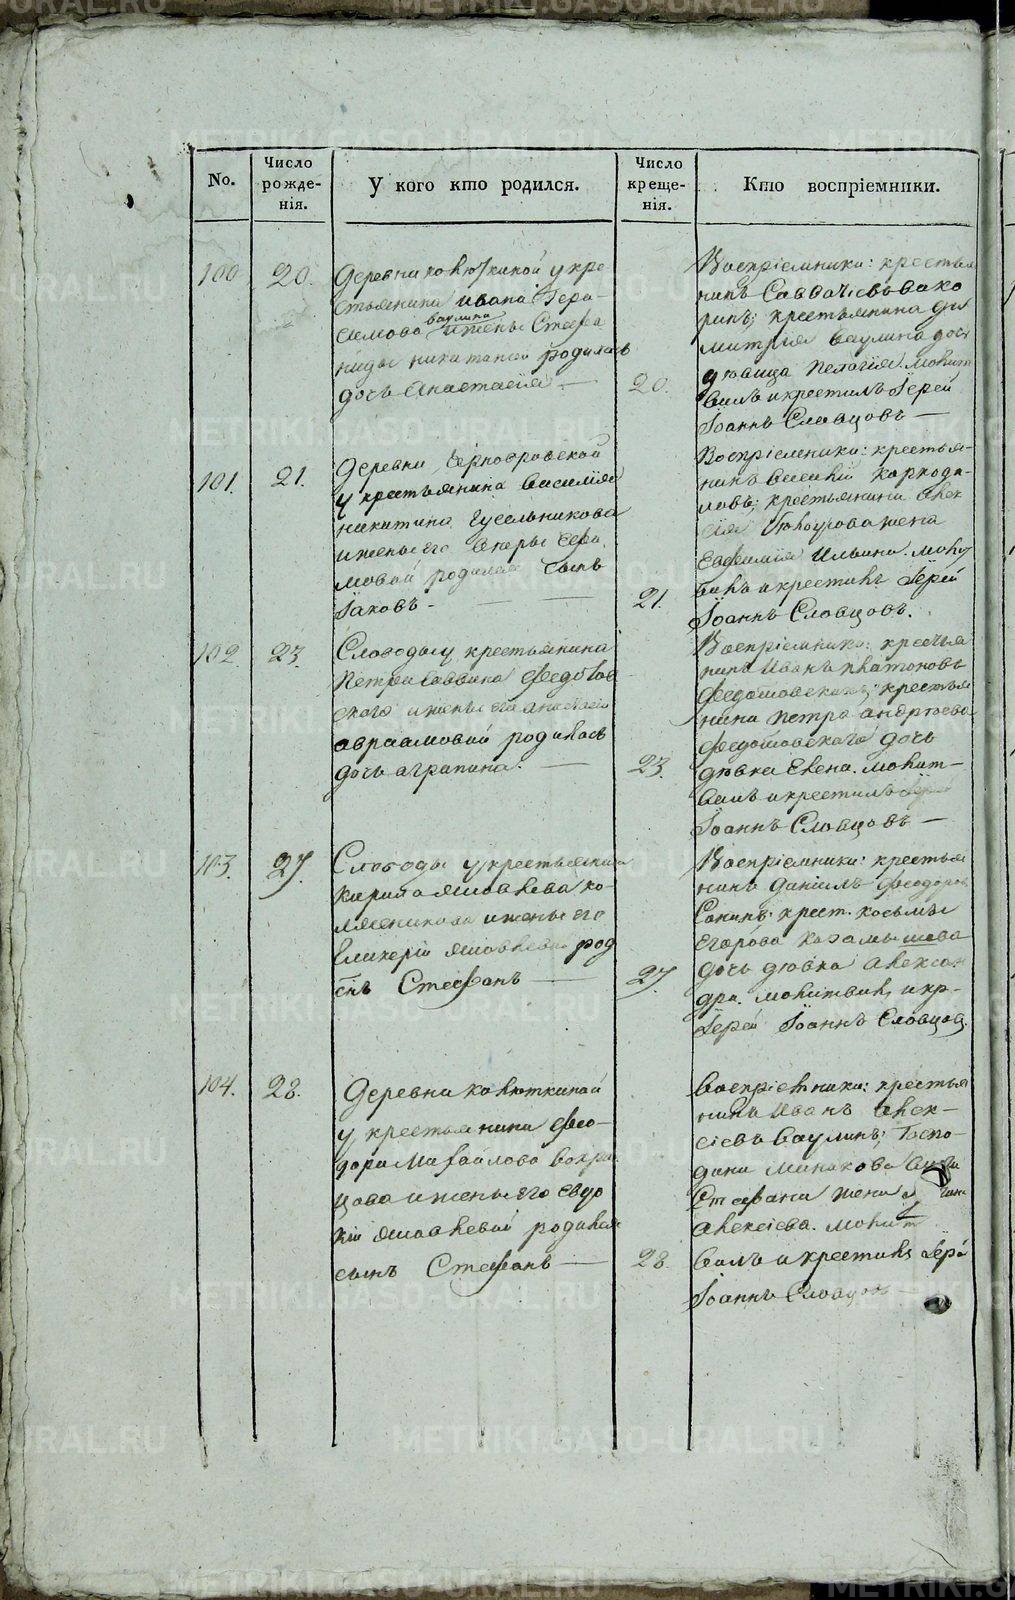 No.
Число
рожде-
нія.
У кого кто родился.
Число
креще-
нія.
Кто воспріемники.
100
20.
деревни у кре
стьянина ивана Гера-
симова ваулина и жены Стефа
ниды никитиной родилась
дочь Анастасія —
20.
Воспріемники: крестья
нинъ Савватіевъ
крестьянина ди
митрія ваулина дочь
дѣвица пелагія. молит
вилъ и крестилъ Іерей
Іоаннъ Словцовъ —
101.
21.
деревни
у крестьянина василія
никитина Гусельникова
и жены его
родился сынъ
Іаковъ. —
21.
Воспріемники: крестья-
нинъ василій
крестьянина алек
сія жена
Евфимія Ильина. молит
вилъ и крестилъ Іерей
Іоаннъ Словцовъ.
102.
23.
Слободы у крестьянина
петра саввина Федотов
скаго и жены его анастасіи
авраамовой родилась
дочь аграпина. —
23.
Воспріемники: крестья
нинъ Иванъ платоновъ
крестья
нина петра андрѣева
дочь
дѣвка Елена. молит-
вилъ и крестилъ Іерей
Іоаннъ Словцовъ —
103.
27.
Слободы у крестьянина
кирила яковлева ко-
лясникова и жены его
Гликеріи яковлевой род
сынъ Стефанъ —
27.
Воспріемники: крестья
нинъ даніилъ феодоров
Санинъ; крест. косьмы
егорова
дочь дѣвка алексан
дра. молитвилъ и кр-
Іерей Іоаннъ Словцовъ.
104.
28.
деревни калюткиной
у крестьянина Фео-
дора Михайлова
и жены его Евдо
кіи яковлевой родился
сынъ Стефанъ —
28.
воспріемники: крестья
нинъ Иванъ алек-
сіевъ ваулинъ; Госпо-
дина
Стефана жена
алексіева. молит
вилъ и крестилъ Іерей
Іоаннъ Словцовъ —
METRIKI.GASO-URAL.RU